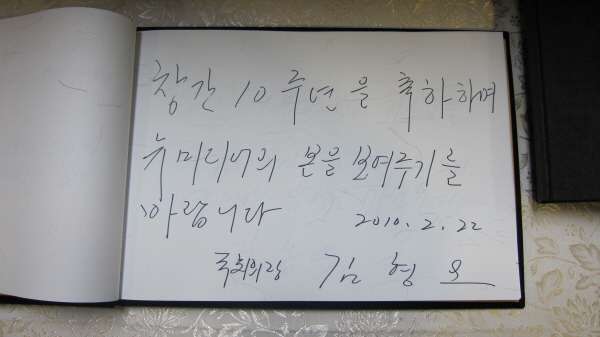 창간 10 주년 을 축하하며
뉴미디어의 본을 보여주기를
바랍니다 2010. 2. 22
국회의장 김 형 오